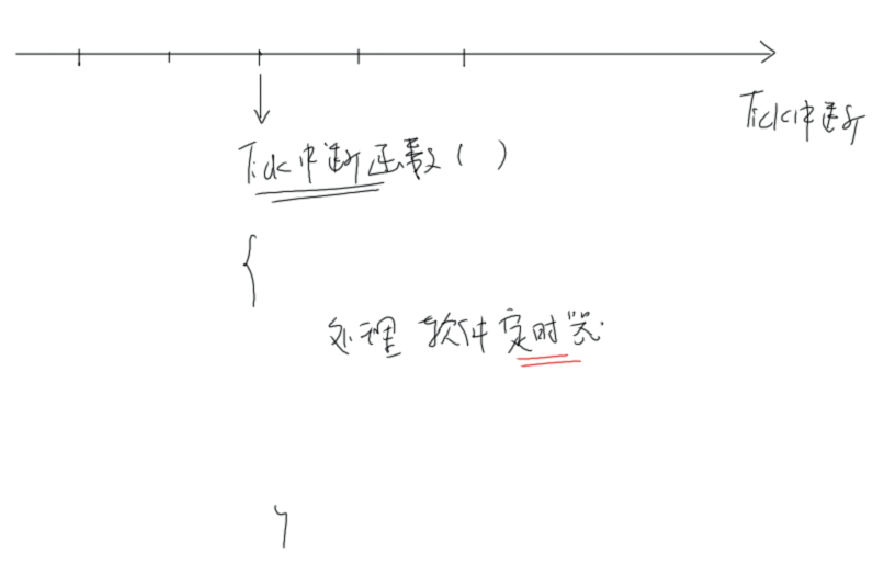 Tick中断
Tick中断函数( )
{
处理 软件定时器
}